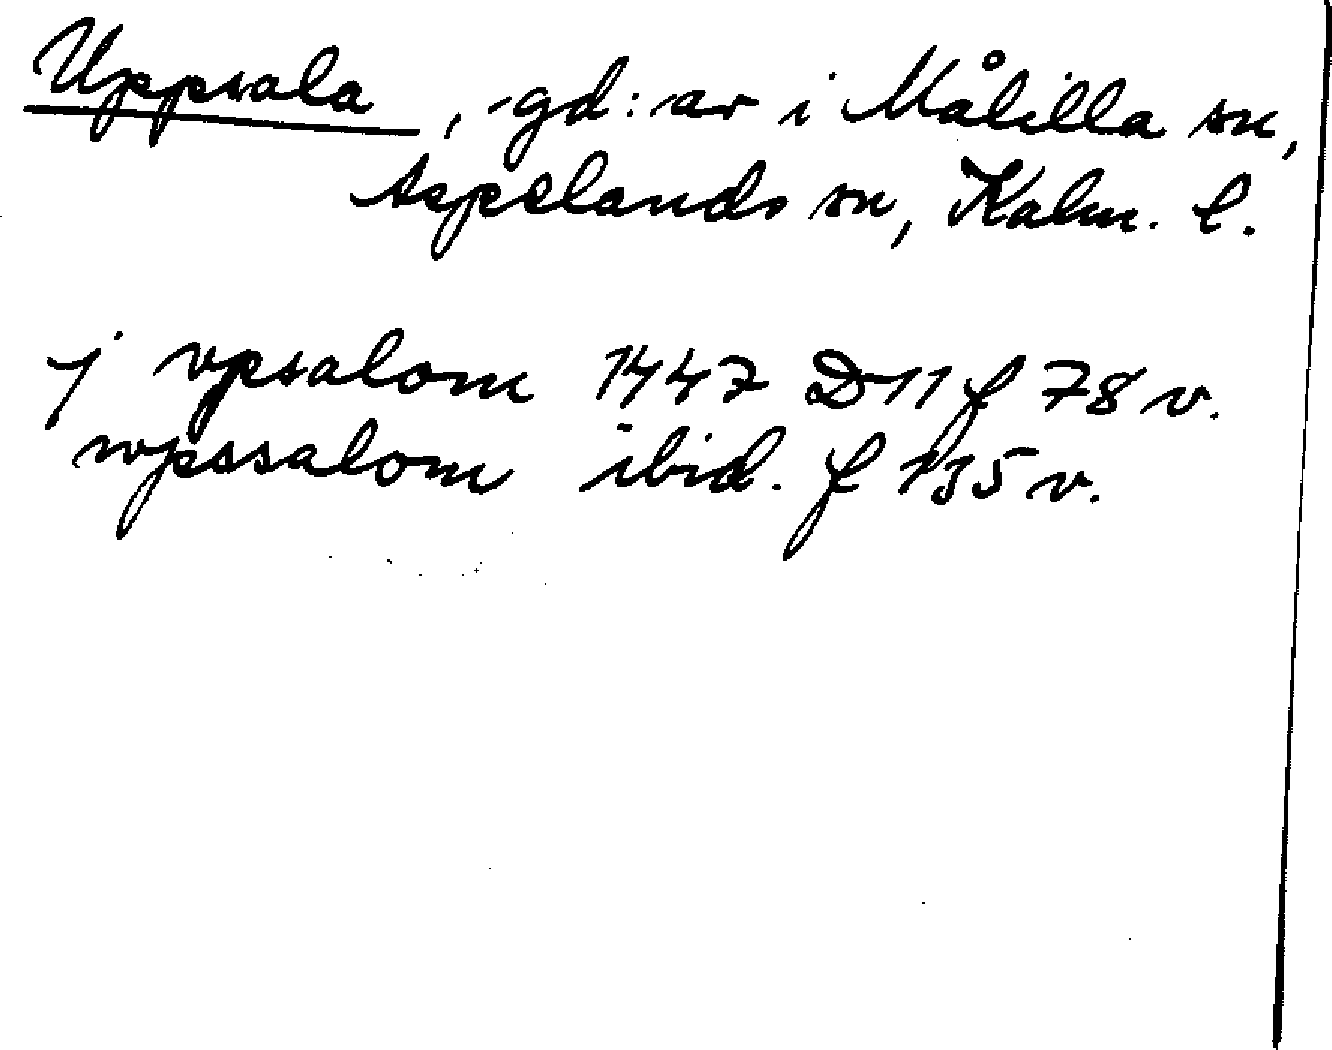 Uppsala, -gd:ar i Målilla sn,
Aspelands sn, Kalm. l.
j vpsalom 1447 D 11 f 78 v.
wpssalom ibid. f 135 v.